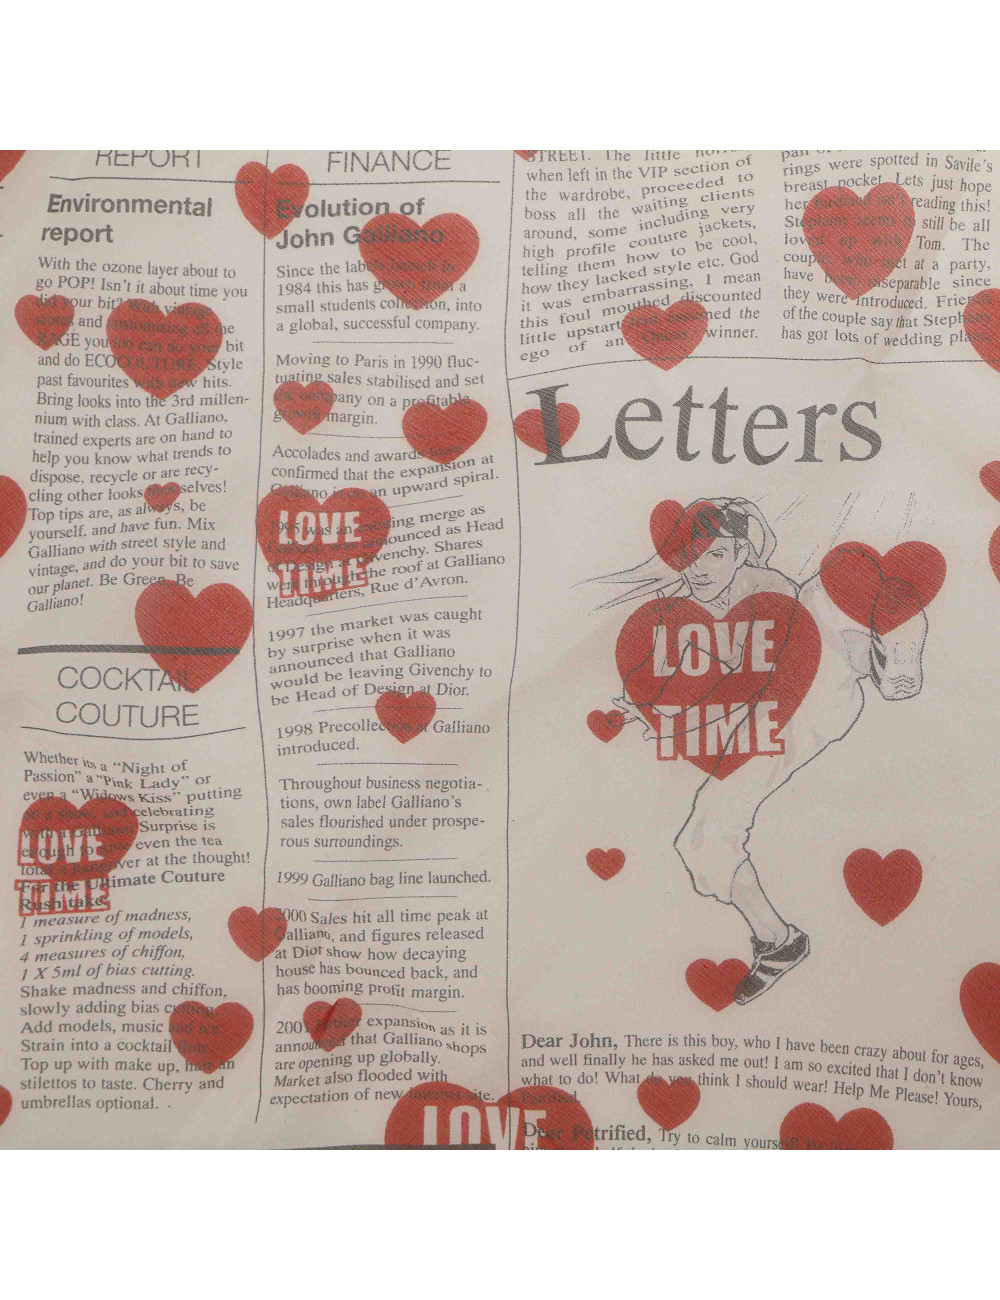 REPORT
Environmental
report
With the ozone layer about to
go POP! Isn't it about time you
did your bit? With vintage
stores and customising all the
RAGE you too can do your bit
and do ECOCOUTURE. Style
past favourites with new hits.
Bring looks into the 3rd millen-
nium with class. At Galliano,
trained experts are on hand to
help you know what trends to
dispose, recycle or are recy-
cling other looks themselves!
Top tips are, as always, be
yourself, and have fun. Mix
Galliano with street style and
vintage, and do your bit to save
our planet. Be Green, Be
Galliano!
COCKTAIL
COUTURE
Whether its a “Night of
Passion” a “Pink Lady” or
even a “Widows Kiss” putting
on a show, and celebrating
with a Galliano Surprise is
enough to give even the tea
total a hangover at the thought!
For the Ultimate Couture
Rush take
LOVE
TIME
1 measure of madness,
1 sprinkling of models,
4 measures of chiffon,
1 X 5ml of bias cutting.
Shake madness and chiffon,
slowly adding bias cutting.
Add models, music and ice.
Strain into a cocktail flute.
Top up with make up, hats an
stilettos to taste. Cherry and
umbrellas optional. .
FINANCE
Evolution of
John Galliano
Since the labels launch in
1984 this has grown from a
small students collection, into
a global, successful company.
Moving to Paris in 1990 fluc-
tuating sales stabilised and set
the company on a profitable
growth margin.
Accolades and awards have
confirmed that the expansion at
Galliano is on an upward spiral.
1995 was an exciting merge as
Galliano was announced as Head
of Design at Givenchy. Shares
went through the roof at Galliano
Headquarters, Rue d'Avron.
LOVE
TIME
1997 the market was caught
by surprise when it was
announced that Galliano
would be leaving Givenchy to
be Head of Design at Dior.
1998 Precollection at Galliano
introduced.
Throughout business negotia-
tions, own label Galliano's
sales flourished under prospe-
rous surroundings.
1999 Galliano bag line launched.
2000 Sales hit all time peak at
Galliano, and figures released
at Dior show how decaying
house has bounced back, and
has booming profit margin.
2001 further expansion as it is
announced that Galliano shops
are opening up globally.
Market also flooded with
expectation of new internet site.
LOVE
STREET. The little
when left in the VIP section of
the wardrobe, proceeded to
boss all the waiting clients
around, some including very
high profile couture jackets,
telling them how to be cool,
how they lacked style etc. God
it was embarrassing, I mean
this foul mouthed discounted
little upstart had assumed the
ego of an winner.
rings were spotted in Savile's
breast pocket. Lets just hope
her husband isn't reading this!
Stephany seems to still be all
loved up with Tom. The
couple, who met at a party,
have been inseparable since
they were introduced. Friends
of the couple say that Stephany
has got lots of wedding plans.
Letters
LOVE
TIME
Dear John, There is this boy, who I have been crazy about for ages,
and well finally he has asked me out! I am so excited that I don't know
what to do! What do you think I should wear! Help Me Please! Yours,
Petrified.
Dear Petrified, Try to calm yourself!